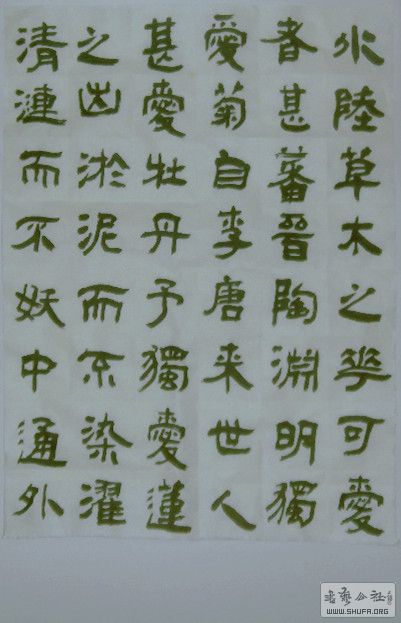 水陸草木之華可愛
者甚蕃晉陶淵明獨
愛菊自李唐来世人
甚愛牡丹予獨愛蓮
之出淤泥而不染濯
清漣而不妖中通外
书法公社
WWW.SHUFA.ORG